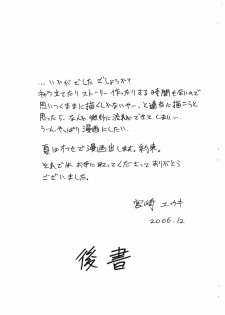 …いかがでしたでしょうか?
ネタ立てたり ストーリー作ったりする時間もないので
思いつくままに描くしかないやー。と適当に描こうと
思ったら、なんか微妙に流れができてしまいー。
うーん、やっぱり漫画にしたい。
夏はわっせで漫画出します。約束。
それでは、お手に取ってくださってありがとう
ございました。
宮崎 ユウキ
2006.12
後書